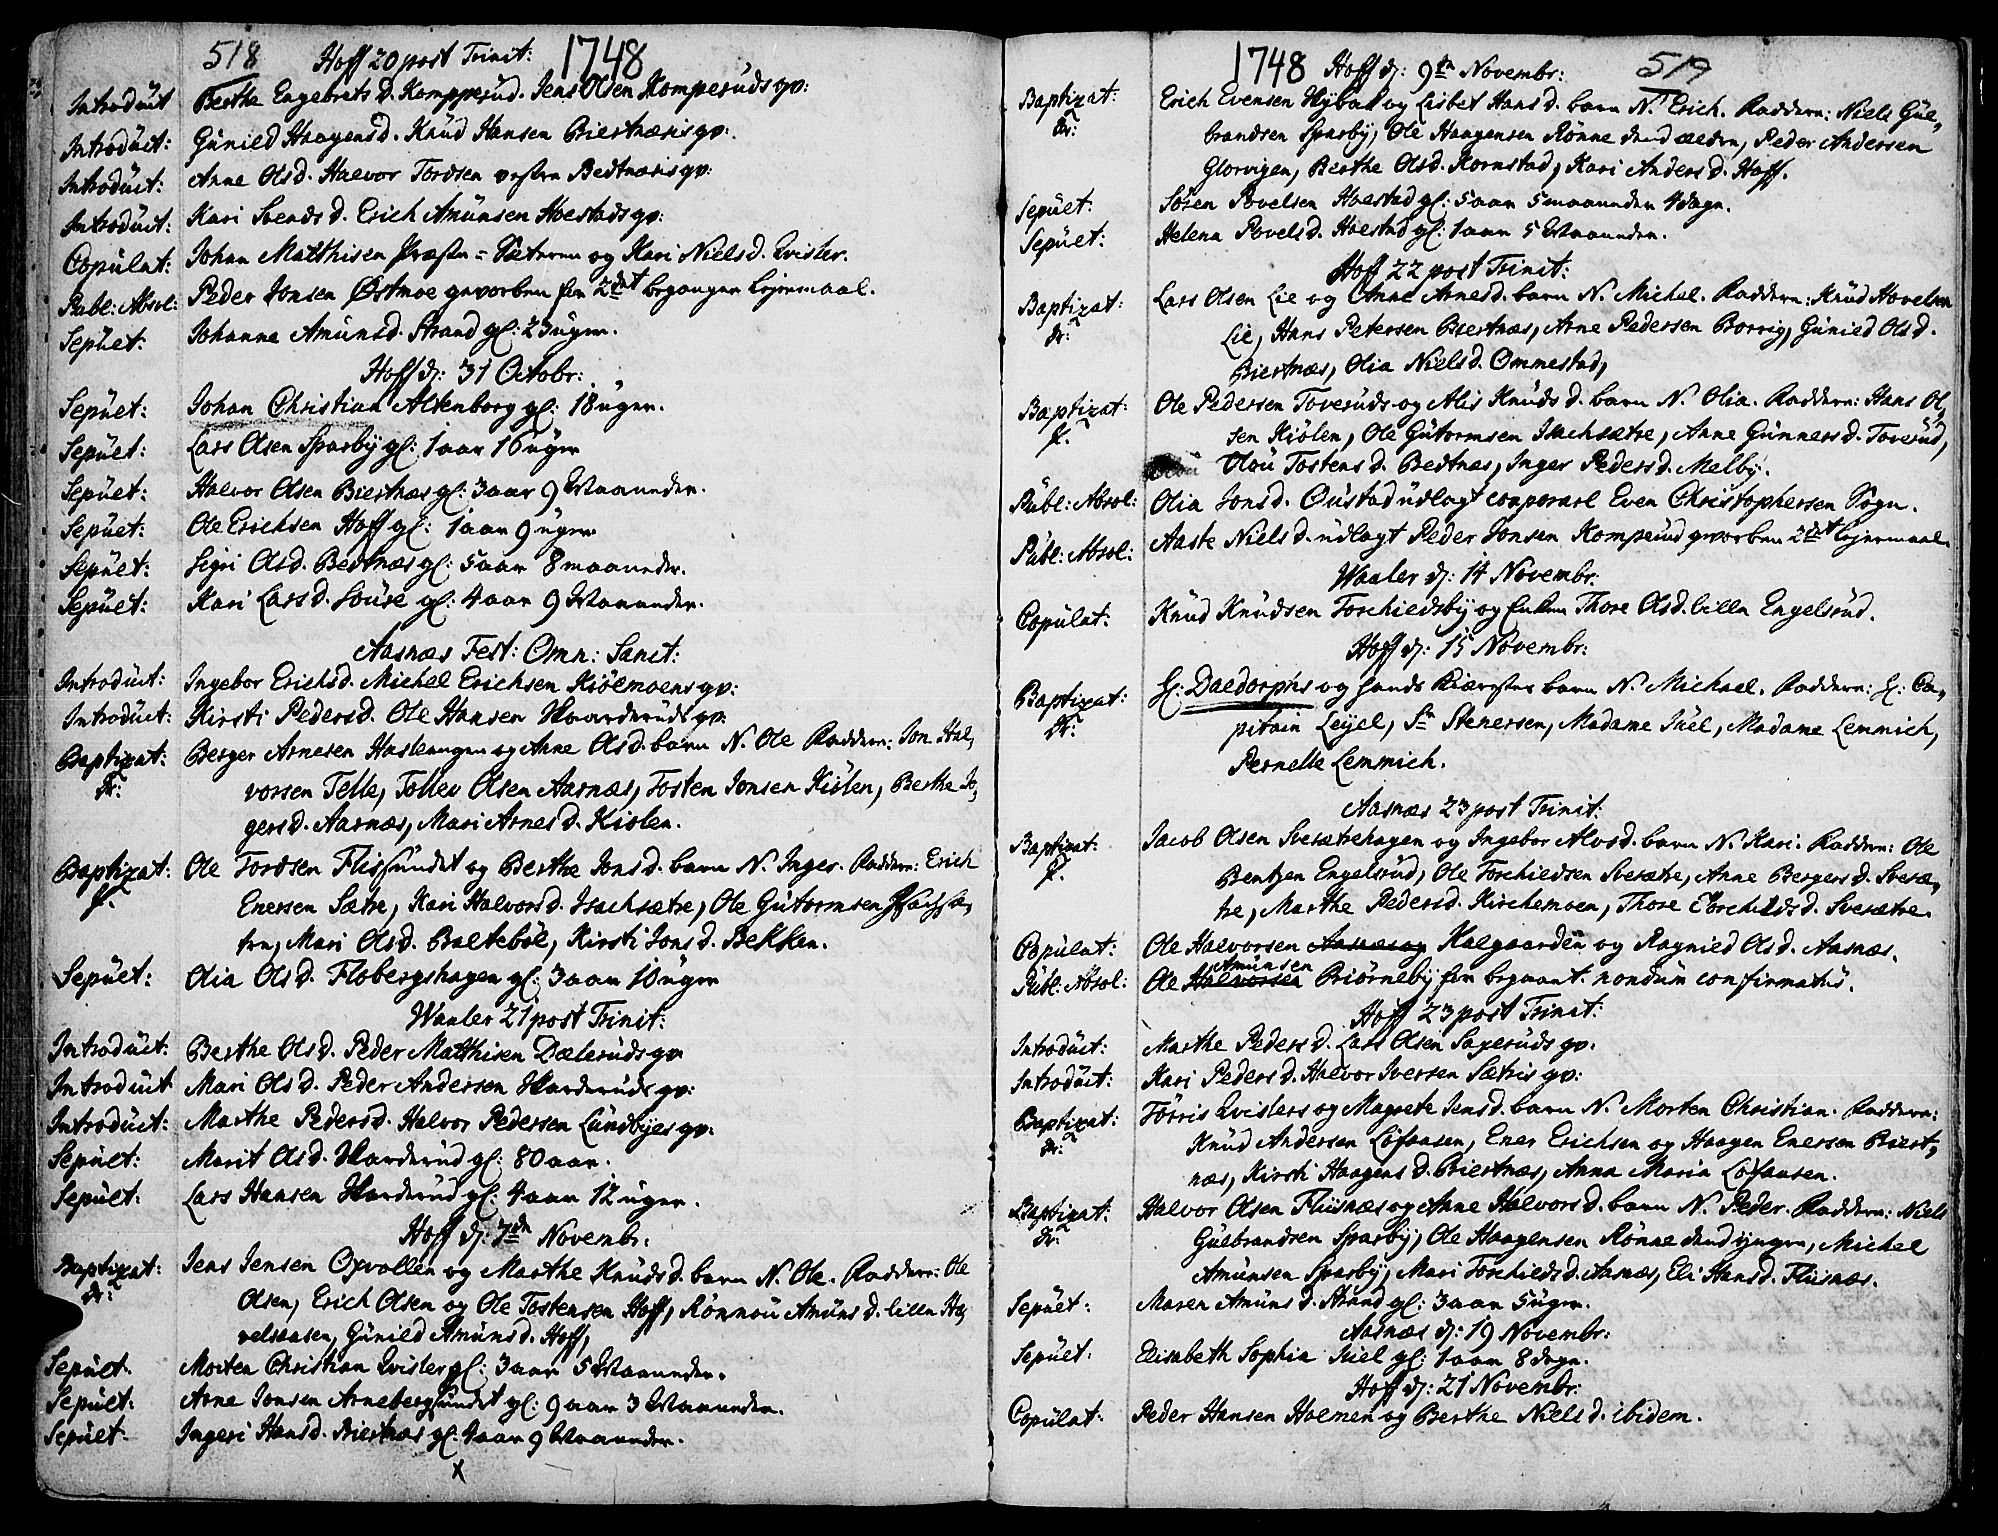 518 Hoff 20 post Trinit: 1748
Introduit Berthe Engebrets D. Kompperud. Jens Olsen Komperuds qv:
Introduit: Gunild Haagens D. Knud Hansen Biertnæsis qv:
Introduit: Anne Ols D. Halvor Tordsen Bedtnæsis qv:
Introduit: Kari Svends D. Erich Amunsen Hoestads qv:
Copulat: Johan Matthisen Præste-Sæteren og Kari Niels D. Qvisler.
Publ: Absol: Peder Jonsen Østmoe gevorben for 2det begangen Lejermaal.
Sepult: Johanne Amunsd. Strand gl: 23 uger.
Hoff d: 31 Octobr:
Sepult: Johan Christian Altenborg gl: 18 uger.
Sepult: Lars Olsen Sparby gl: 1 aar 16 uger
Sepult: Halvor Olsen Biertnæs gl: 3 aar 9 Maaneder.
Sepult: Ole Erichsen Hoff gl: 1 aar 9 uger
Sepult: Sigri Ols D. Bedtnæs gl: 5 aar 8 maaneder.
Sepult: Kari Lars D. Souse gl: 4 aar 9 Maaneder.
Aasnæs Fest: Omn: Sanct:
Introduit: Ingebor Erichs D. Michel Erichsen Kiölmoens qv:
Introduit: Kirsti Peders D. Ole Hansen Haarderuds qv:
Baptizat: Berger Arnesen Hasleengen og Anne Ols D. barn N. Ole Faddere: Jon Hal,
dr: vorsen Telle, Tollev Olsen Aasnæs, Tosten Jonsen Kiölen, Berthe In,
gers D. Aasnæs, Mari Arnes D. Kiölen.
Baptizat: Ole Tordsen Flissundet og Berthe Jons D. barn N. Inger. Faddere: Erich
p. Enersen Sætre, Kari Halvors D. Isachsætre, Ole Gutormsen Isachsæ,
tre, Mari Ols D. Balteböl, Kirsti Jons D. Bekken.
Sepult: Olia Ols D. Flobergshagen gl: 3 aar 10 uger
Waaler 21 post Trinit:
Introduit: Berthe Ols D. Peder Matthisen Dæleruds qv
Introduit Mari Ols D. Peder Andersen Harderuds qv:
Introduit: Marthe Peders D. Halvor Pedersen Lundbyes qv:
Sepult: Marit Ols D. Harderud gl: 80 aar.
Sepult: Lars Hansen Harderud gl: 4 aar 12 uger.
Hoff d: 7de Novembr.
Baptizat: Jens Jensen Opvollen og Marthe Knuds D. barn N. Ole. Faddere: Ole
dr: Olsen, Erich Olsen og Ole Tostensen Hoff, Rönnou Amuns D. lille Ha,
velsaasen, Gunild Amuns D. Hoff,
Sepult Morten Christian Qvisler gl: 3 aar 5 Maaneder.
Sepult: Arne Jonsen Arnebergsundet gl: 9 aar 3 Maaneder.
Sepult Ingeri Hans D. Biertnæs gl. 4 aar 9 Maaneder.
x
1748 Hoff d: 9de Novembr: 519
Baptizat: Erich Evensen Hybak og Lisbet Hans D. barn N. Erich. Faddere: Niels Gul,
dr: brandsen Sparby, Ole Haagensen Rönne dend ældre, Peder Andersen
Glorvigen, Berthe Ols D. Kornstad, Kari Anders D. Hoff.
Sepult: Sören Povelsen Hoestad gl: 5 aar 5 maaneder 4 dage.
Sepult: Helena Povels D. Hoestad gl: 1 aar 5 Maaneder.
Hoff 22 post Trinit:
Baptizat: Lars Olsen Lie og Anne Arnes D. barn N. Michel. Faddere: Knud Hovelsen
dr: Lie, Hans Petersen Biertnæs, Arne Pedersen Borrig, Gunild Ols D.
Biertnæs, Olia Niels D. Ommestad,
Baptizat: Ole Pedersen Toveruds og Alis Knuds D. barn N. Olia. Faddere: Hans Ol,
p. sen Kiölen, Ole Gutormsen Isachsætre, Anne Gunners D. Toverud,
Olou Tostens D. Bedtnæs, Inger Peders D. Melby.
Publ: Absol: Olia Jons D. Oustad udlagt corporal Even Christophersen Sögn.
Publ: Absol: Aaste Niels D. udlagt Peder Jonsen Komperud gevorben 2det lejermaal.
Waaler d: 14 Novembr:
Copulat: Knud Knudsen Torchildsby og Enken Thore Ols D. lille Engelsrud.
Hoff d: 15 Novembr:
Baptizat: Hr: Daldorphs og hands Kiæreste barn N. Michael. Faddere: Hr: Ca,
dr: pitain Leyel, Sr Stenersen, Madame Juel, Madame Lemmich,
Pernelle Lemmich.
Aasnæs 23 post Trinit:
Baptizat: Jacob Olsen Svesætrehagen og Ingebor Alvs D. barn N. Kari. Faddere: Ole
p. Bentzen Engelsrud, Ole Torchildsen Svesætre, Anne Bergers D. Svesæ,
tre, Marthe Peders D. Kirchemoen, Thore Torchilds D. Svesætre.
Copulat: Ole Halvorsen Aasnæs og Kalgaarden og Ragnild Ols D. Aasnæs.
Amunsen
Publ: Absol: Ole Halvorsen Biörneby for begaaet. nondum confirmatus.
Hoff 23 post Trinit:
Introduit: Marthe Peders D. Lars Olsen Saxeruds qv.
Introduit: Kari Peders D. Halvor Iversen Sætris qv:
Baptizat: Törris Qvislers og Magrete Jens D. barn N. Morten Christian. Faddere:
dr: Knud Andersen Löfaasen, Ener Erichsen og Haagen Enersen Biert,
næs, Kirsti Haagens D. Biertnæs, Anna Maria Löfaasen.
Baptizat: Halvor Olsen Fliisnæs og Anne Halvors D. barn N. Peder. Faddere: Niels
dr: Gulbrandsen Sparby, Ole Haagensen Rönne dend yngre, Michel
Amunsen Sparby, Mari Torchilds D. Aasnæs, Eli Hans D. Fliisnæs.
Sepult: Maren Amuns D. Strand gl: 3 aar 5 uger.
Aasnæs d: 19 Novembr:
Sepult: Elisabeth Sophia Kiel gl: 1 aar 8 dage.
Hoff d: 21 Novembr:
Copulat: Peder Hansen Holmen og Berthe Niels D. ibidem.